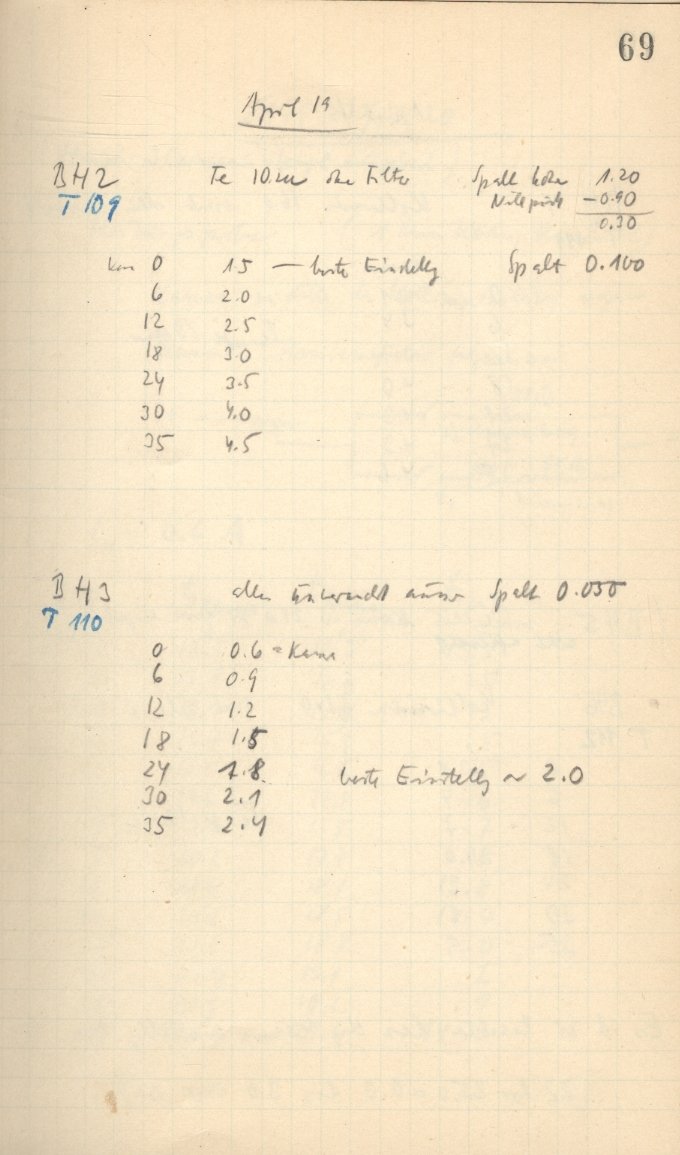 69
April 19
BH2 Te 10 cm ohne Filter Spalt höhe 1.20
T 109 -0.90
0.30
0 1.5 — beste Einstellg Spalt 0.100
6 2.0
12 2.5
18 3.0
24 3.5
30 4.0
35 4.5
BH3 alles unverändert ausser Spalt 0.050
T 110
0 0.6 = Kern
6 0.9
12 1.2
18 1.5
24 1.8 beste Einstellg ~ 2.0
30 2.1
35 2.4